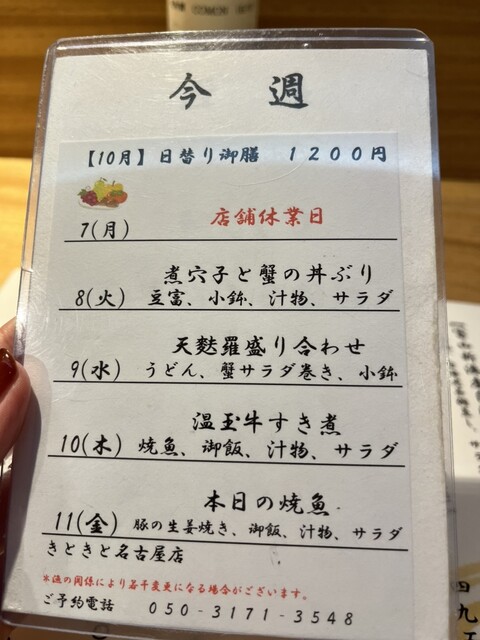 今 週
【10月】日替り御膳 1200円
店舗休業日
7(月)
煮穴子と蟹の丼ぶり
8(火) 豆富、小鉢、汁物、サラダ
天麩羅盛り合わせ
9(水) うどん、蟹サラダ巻き、小鉢
温玉牛すき煮
10(木) 焼魚、御飯、汁物、サラダ
本日の焼魚
11(金) 豚の生姜焼き、御飯、汁物、サラダ
きときと名古屋店
※漁の関係により若干変更になる場合がございます。
ご予約電話 050-3171-3548
四九